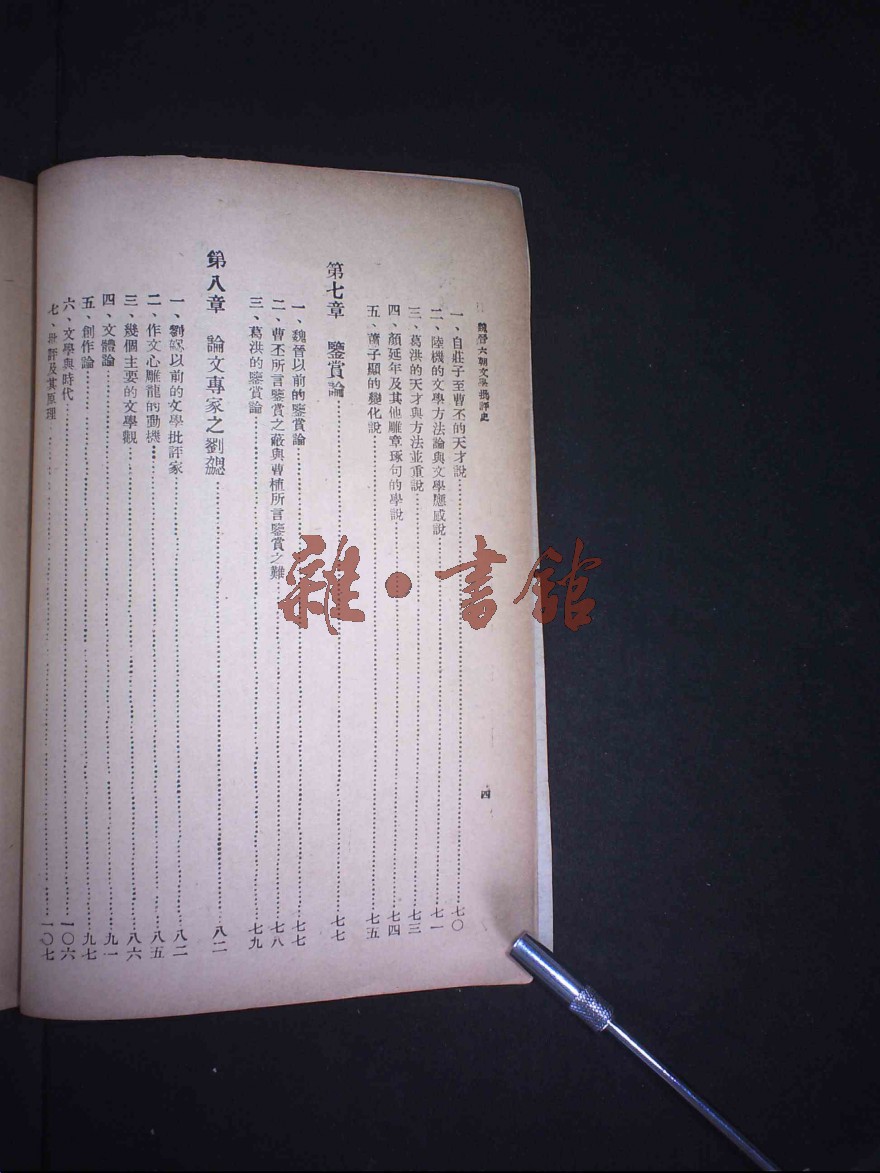 魏晉六朝文學批評史
四
一、自莊子至曹丕的天才說……七〇
二、陸機的文學方法論與文學應感說……七一
三、葛洪的天才與方法並重說……七三
四、顏延年及其他雕章琢句的學說……七四
五、蕭子顯的變化說……七五
第七章　鑒賞論……七七
一、魏晉以前的鑒賞論……七七
二、曹丕所言鑒賞之蔽與曹植所言鑒賞之難……七八
三、葛洪的鑒賞論……七九
第八章　論文專家之劉勰……八二
一、劉勰以前的文學批評家……八二
二、作文心雕龍的動機……八五
三、幾個主要的文學觀……八六
四、文體論……九一
五、創作論……九七
六、文學與時代……一〇六
七、批評及其原理……一〇七
雜·書館